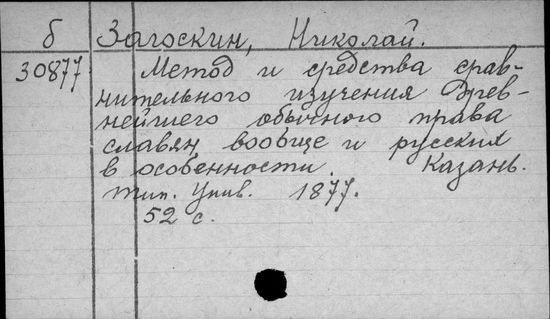 б Загоскин, Николай.
30877 Метод и средства срав-
нительного изучения древ-
нейшего обычного права
славян вообще и русских
в особенности. Казань.
тип. Унив. 1877.
52 с.